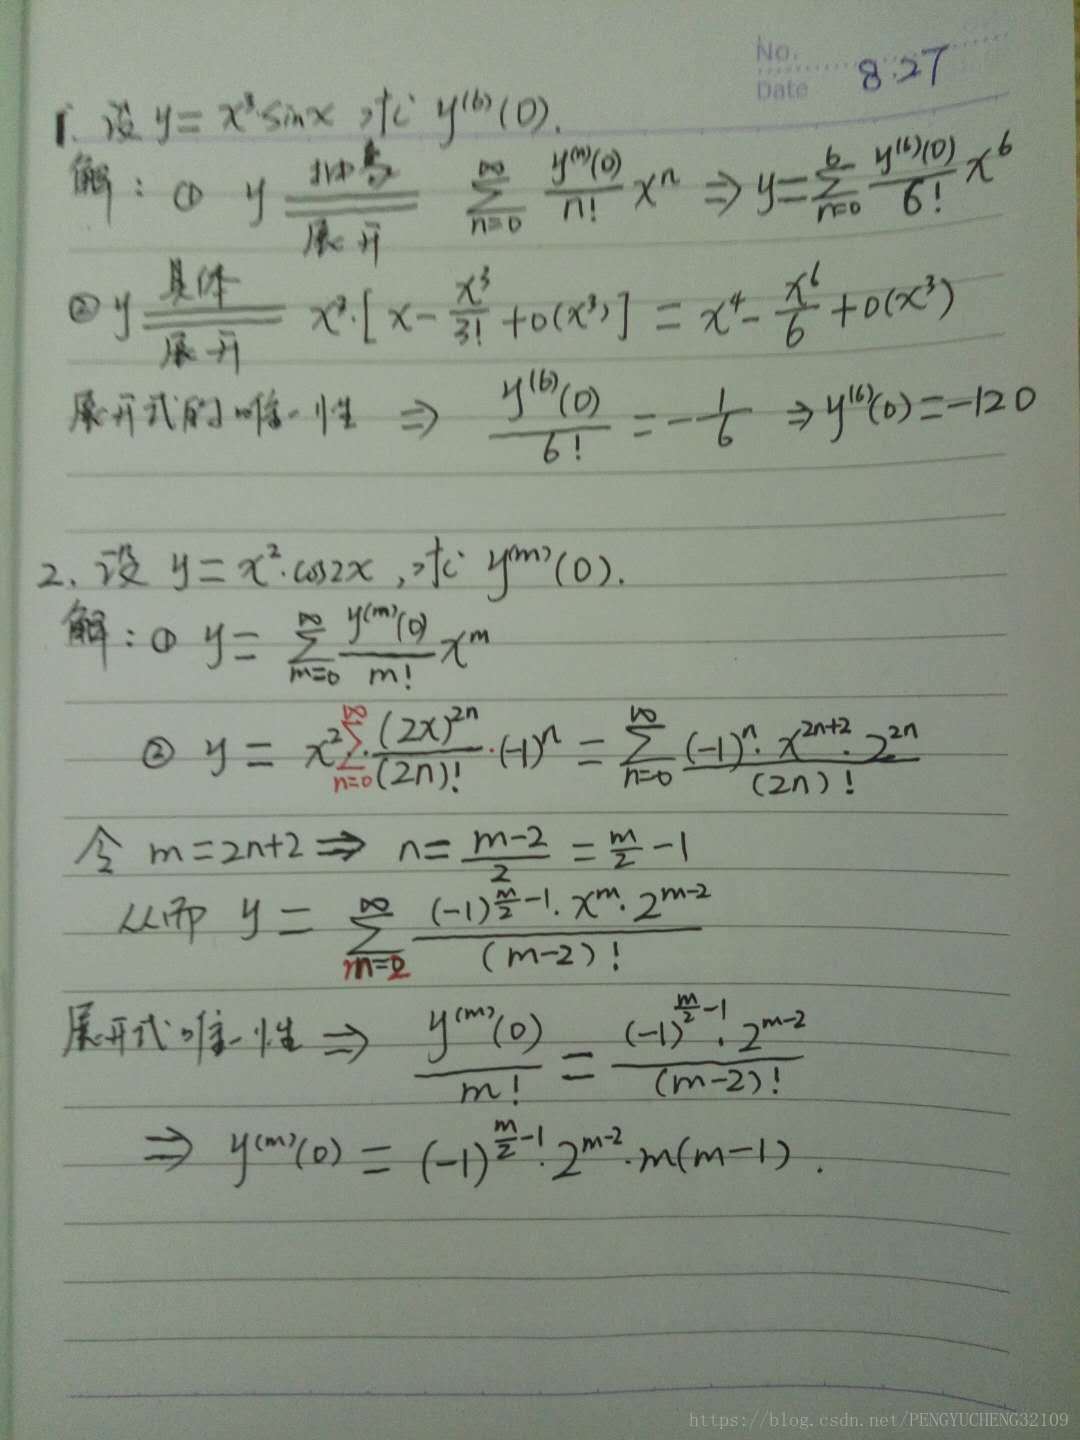 No.
Date 8.27
1. 设 y = x³·sinx, 求 y⁽⁶⁾(0).
解: ① y 抽象 展开 ∑_{n=0}^{∞} y⁽ⁿ⁾(0)/n! xⁿ ⇒ y = ∑_{n=0}^{6} y⁽⁶⁾(0)/6! x⁶
② y 具体 展开 x³·[x - x³/3! + o(x³)] = x⁴ - x⁶/6 + o(x³)
展开式的唯一性 ⇒ y⁽⁶⁾(0)/6! = -1/6 ⇒ y⁽⁶⁾(0) = -120
2. 设 y = x²·cos2x, 求 y⁽ᵐ⁾(0).
解: ① y = ∑_{m=0}^{∞} y⁽ᵐ⁾(0)/m! xᵐ
② y = x² ∑_{n=0}^{∞} (2x)²ⁿ/(2n)! ·(-1)ⁿ = ∑_{n=0}^{∞} (-1)ⁿ·x²ⁿ⁺²·2²ⁿ/(2n)!
令 m = 2n+2 ⇒ n = (m-2)/2 = m/2 - 1
从而 y = ∑_{m=2}^{∞} (-1)^{m/2-1}·xᵐ·2^{m-2}/(m-2)!
展开式唯一性 ⇒ y⁽ᵐ⁾(0)/m! = (-1)^{m/2-1}·2^{m-2}/(m-2)!
⇒ y⁽ᵐ⁾(0) = (-1)^{m/2-1}·2^{m-2}·m(m-1).
https://blog.csdn.net/PENGYUCHENG32109